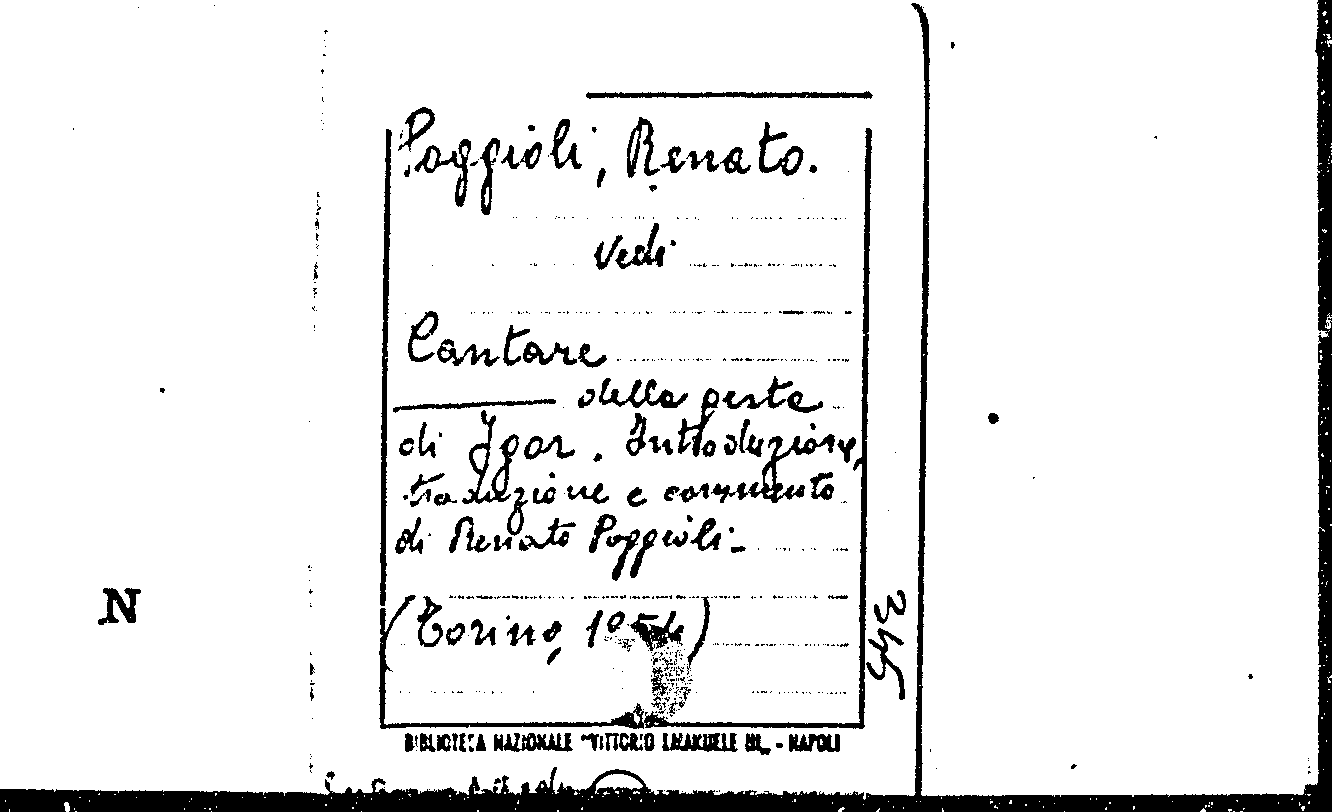 Poggioli, Renato.
Vedi
Cantare
della gesta
di Igor. Introduzione,
traduzione e commento
di Renato Poggioli -
(Torino, 1954)
345
N
BIBLIOTECA NAZIONALE "VITTORIO EMANUELE III„ - NAPOLI